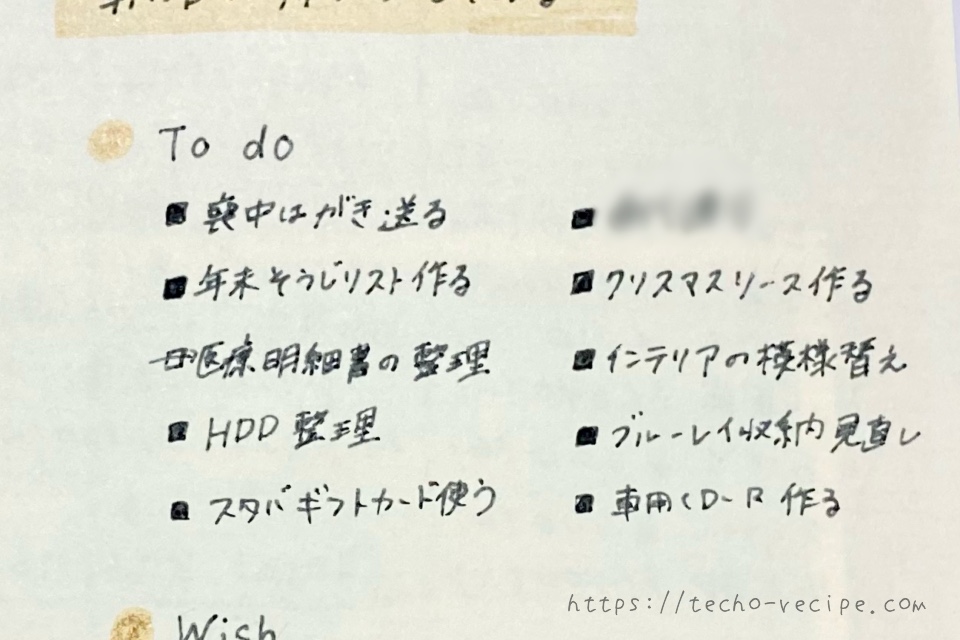 To do
■ 喪中はがき送る
■ 年末そうじリスト作る
医療明細書の整理
■ HDD 整理
■ スタバギフトカード使う
■
■ クリスマスリース作る
■ インテリアの模様替え
■ ブルーレイ収納見直し
■ 車用CD-R 作る
Wish
https://techo-recipe.com